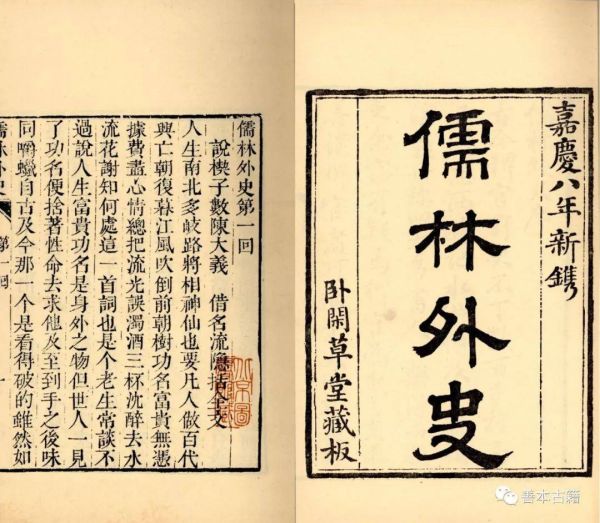 嘉慶八年新鐫
儒林外史
卧閑草堂藏板
儒林外史第一回
說楔子敷陳大義 借名流隱括全文
人生南北多岐路將相神仙也要凡人做百代
興亡朝復暮江風吹倒前朝樹功名富貴無憑
據費盡心情總把流光誤濁酒三杯沈醉去水
流花謝知何處這一首詞也是個老生常談不
過說人生富貴功名是身外之物但世人一見
了功名便捨著性命去求他及至到手之後味
同嚼蠟自古及今那一個是看得破的雖然如
儒林外史 第一回 一
善本古籍